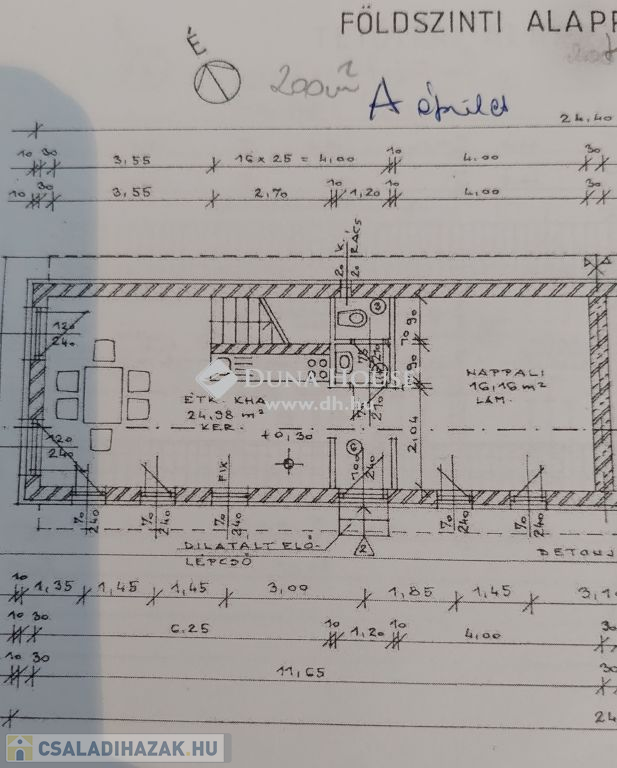 FÖLDSZINTI ALAPR
É
200m²
A épület
24.40
10 30 3,55 16 x 25 = 4,00 10 4.00 30
10 30 3,55 2,70 10 1,20 10 4,00 30
20 K.
20 RÁCS
120
240
10 90
90
2,04
DUNA HOUSE
www.dh.hu
ÉTK. KHA
24,98 m²
KER.
+0,30
NAPPALI
16,16 m²
LAM.
120
240
FIX
100
240
70
240
70
240
70
240
70
240
70
240
DILATÁLT ELŐ-
LÉPCSŐ
BETONJ
10 1,35 1,45 1,45 3,00 1,85 1,45 3,1
10 30 6.25 10 1,20 10 4,00 30
10 30 11,65 30
24
CSALADIHAZAK.HU